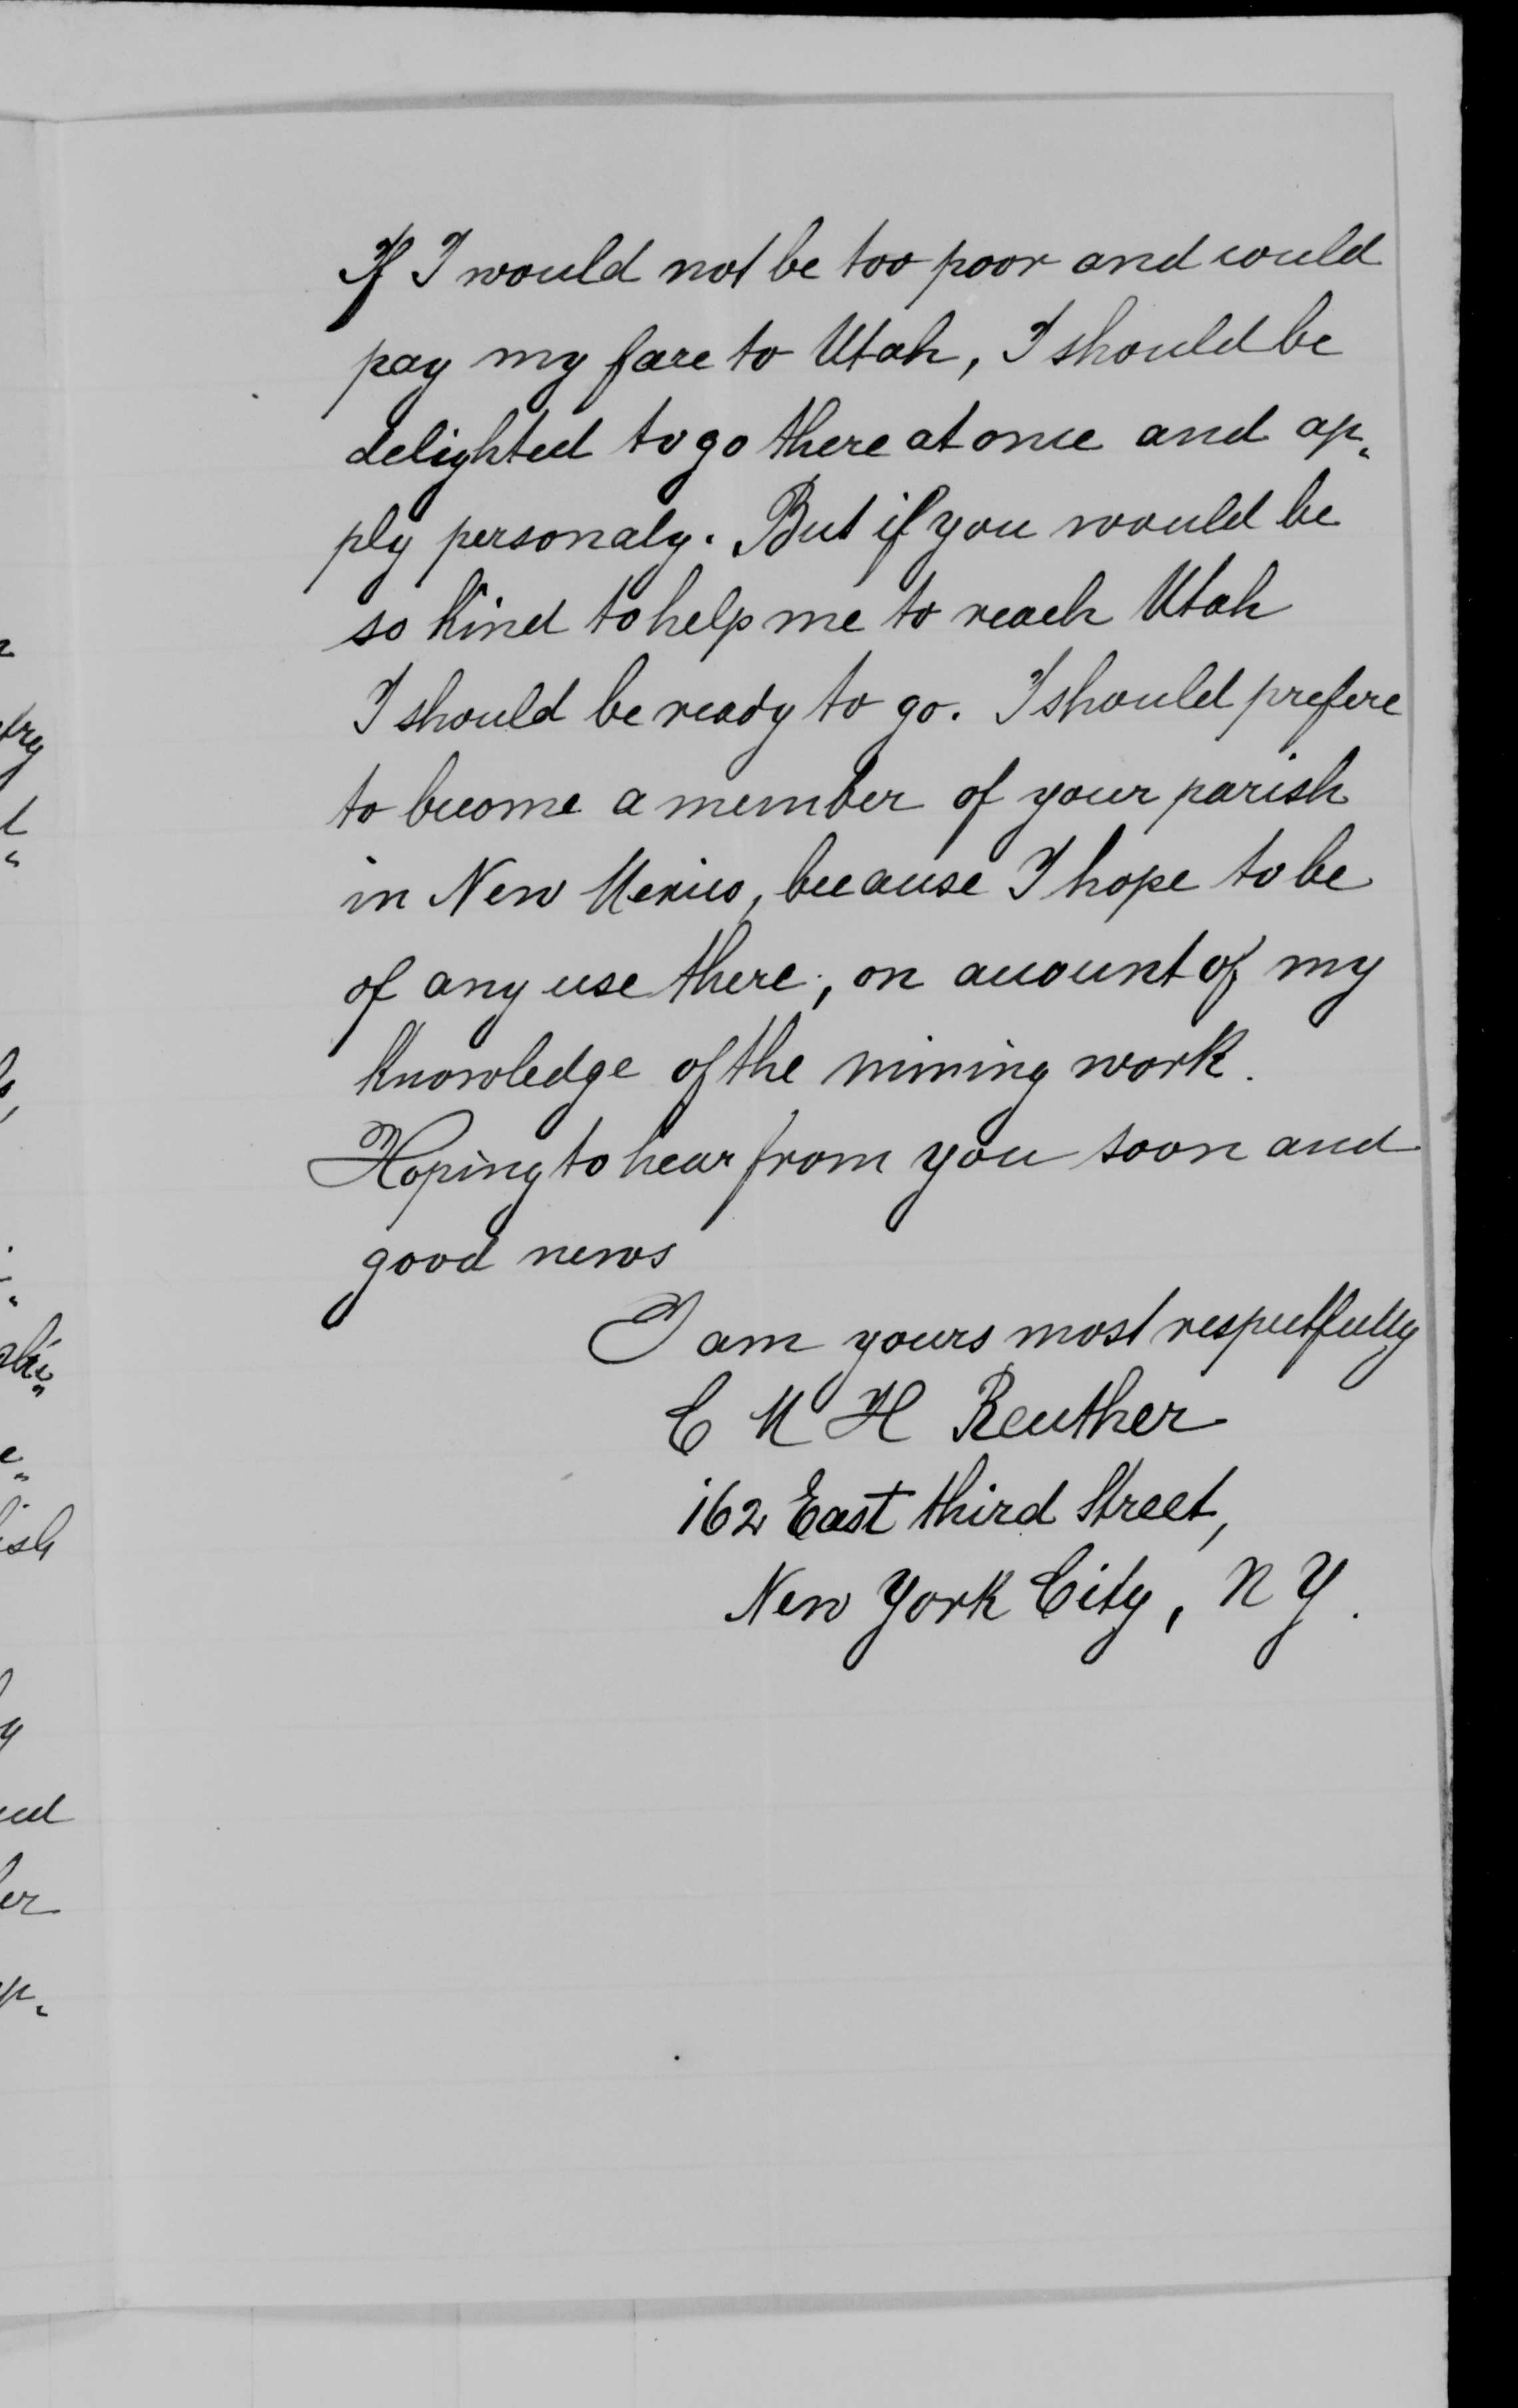 If I would not be too poor and could
pay my fare to Utah, I should be
delighted to go there at once and ap„
ply personaly. But if you would be
so kind to help me to reach Utah
I should be ready to go. I should prefere
to become a member of your parish
in New Mexico, because I hope to be
of any use there, on account of my
knowledge of the mining work.
Hoping to hear from you soon and
good news
I am yours most respectfully
C M H Reuther
162 East third Street,
New York City, N Y.